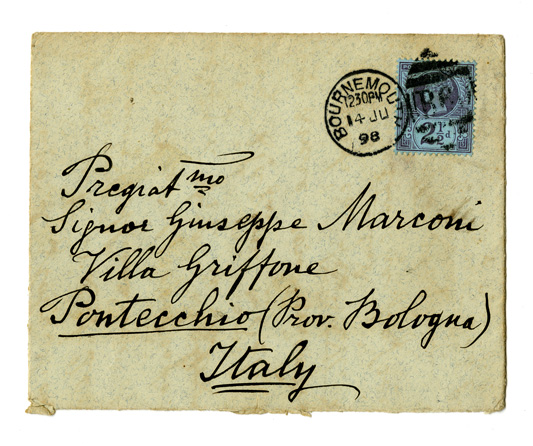 BOURNEMOUTH
1230PM
14 JU
98
2½d
Pregiat.mo
Signor Giuseppe Marconi
Villa Griffone
Pontecchio (Prov. Bologna)
Italy